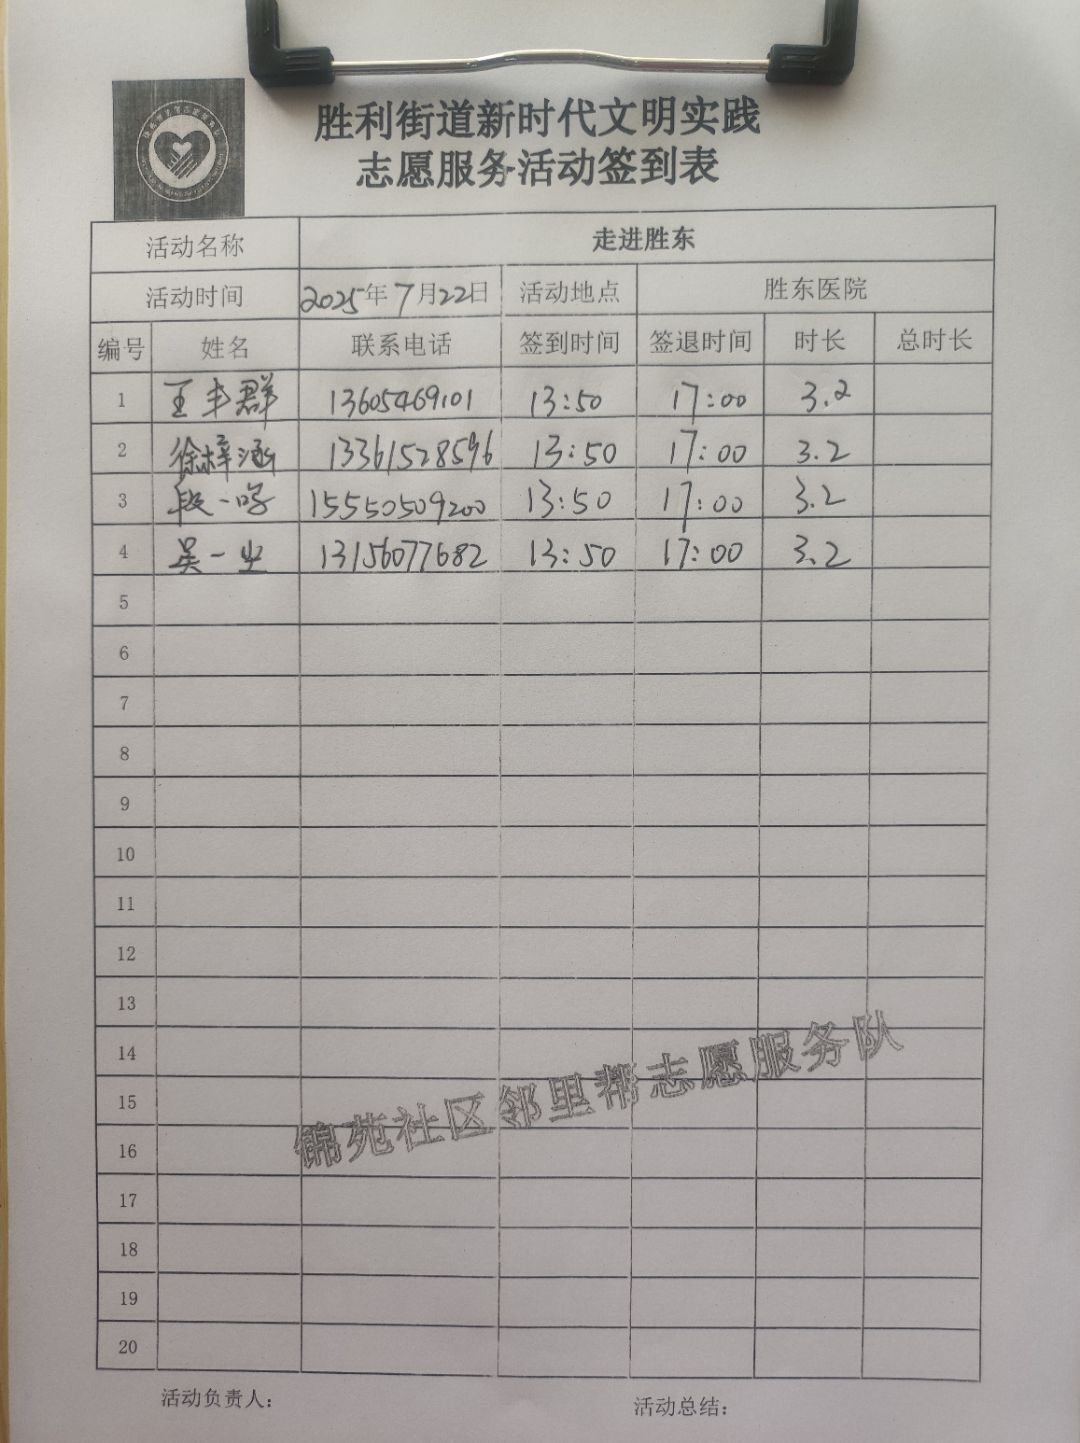 胜利街道新时代文明实践
志愿服务活动签到表
活动名称 走进胜东
活动时间 2025年7月22日 活动地点 胜东医院
编号 姓名 联系电话 签到时间 签退时间 时长 总时长
1 王丰群 13605469101 13:50 17:00 3.2
2 徐梓涵 13361528596 13:50 17:00 3.2
3 段一鸣 15550509200 13:50 17:00 3.2
4 吴一 13156077682 13:50 17:00 3.2
5
6
7
8
9
10
11
12
13
14
15
16
17
18
19
20
锦苑社区邻里帮志愿服务队
活动负责人: 活动总结: